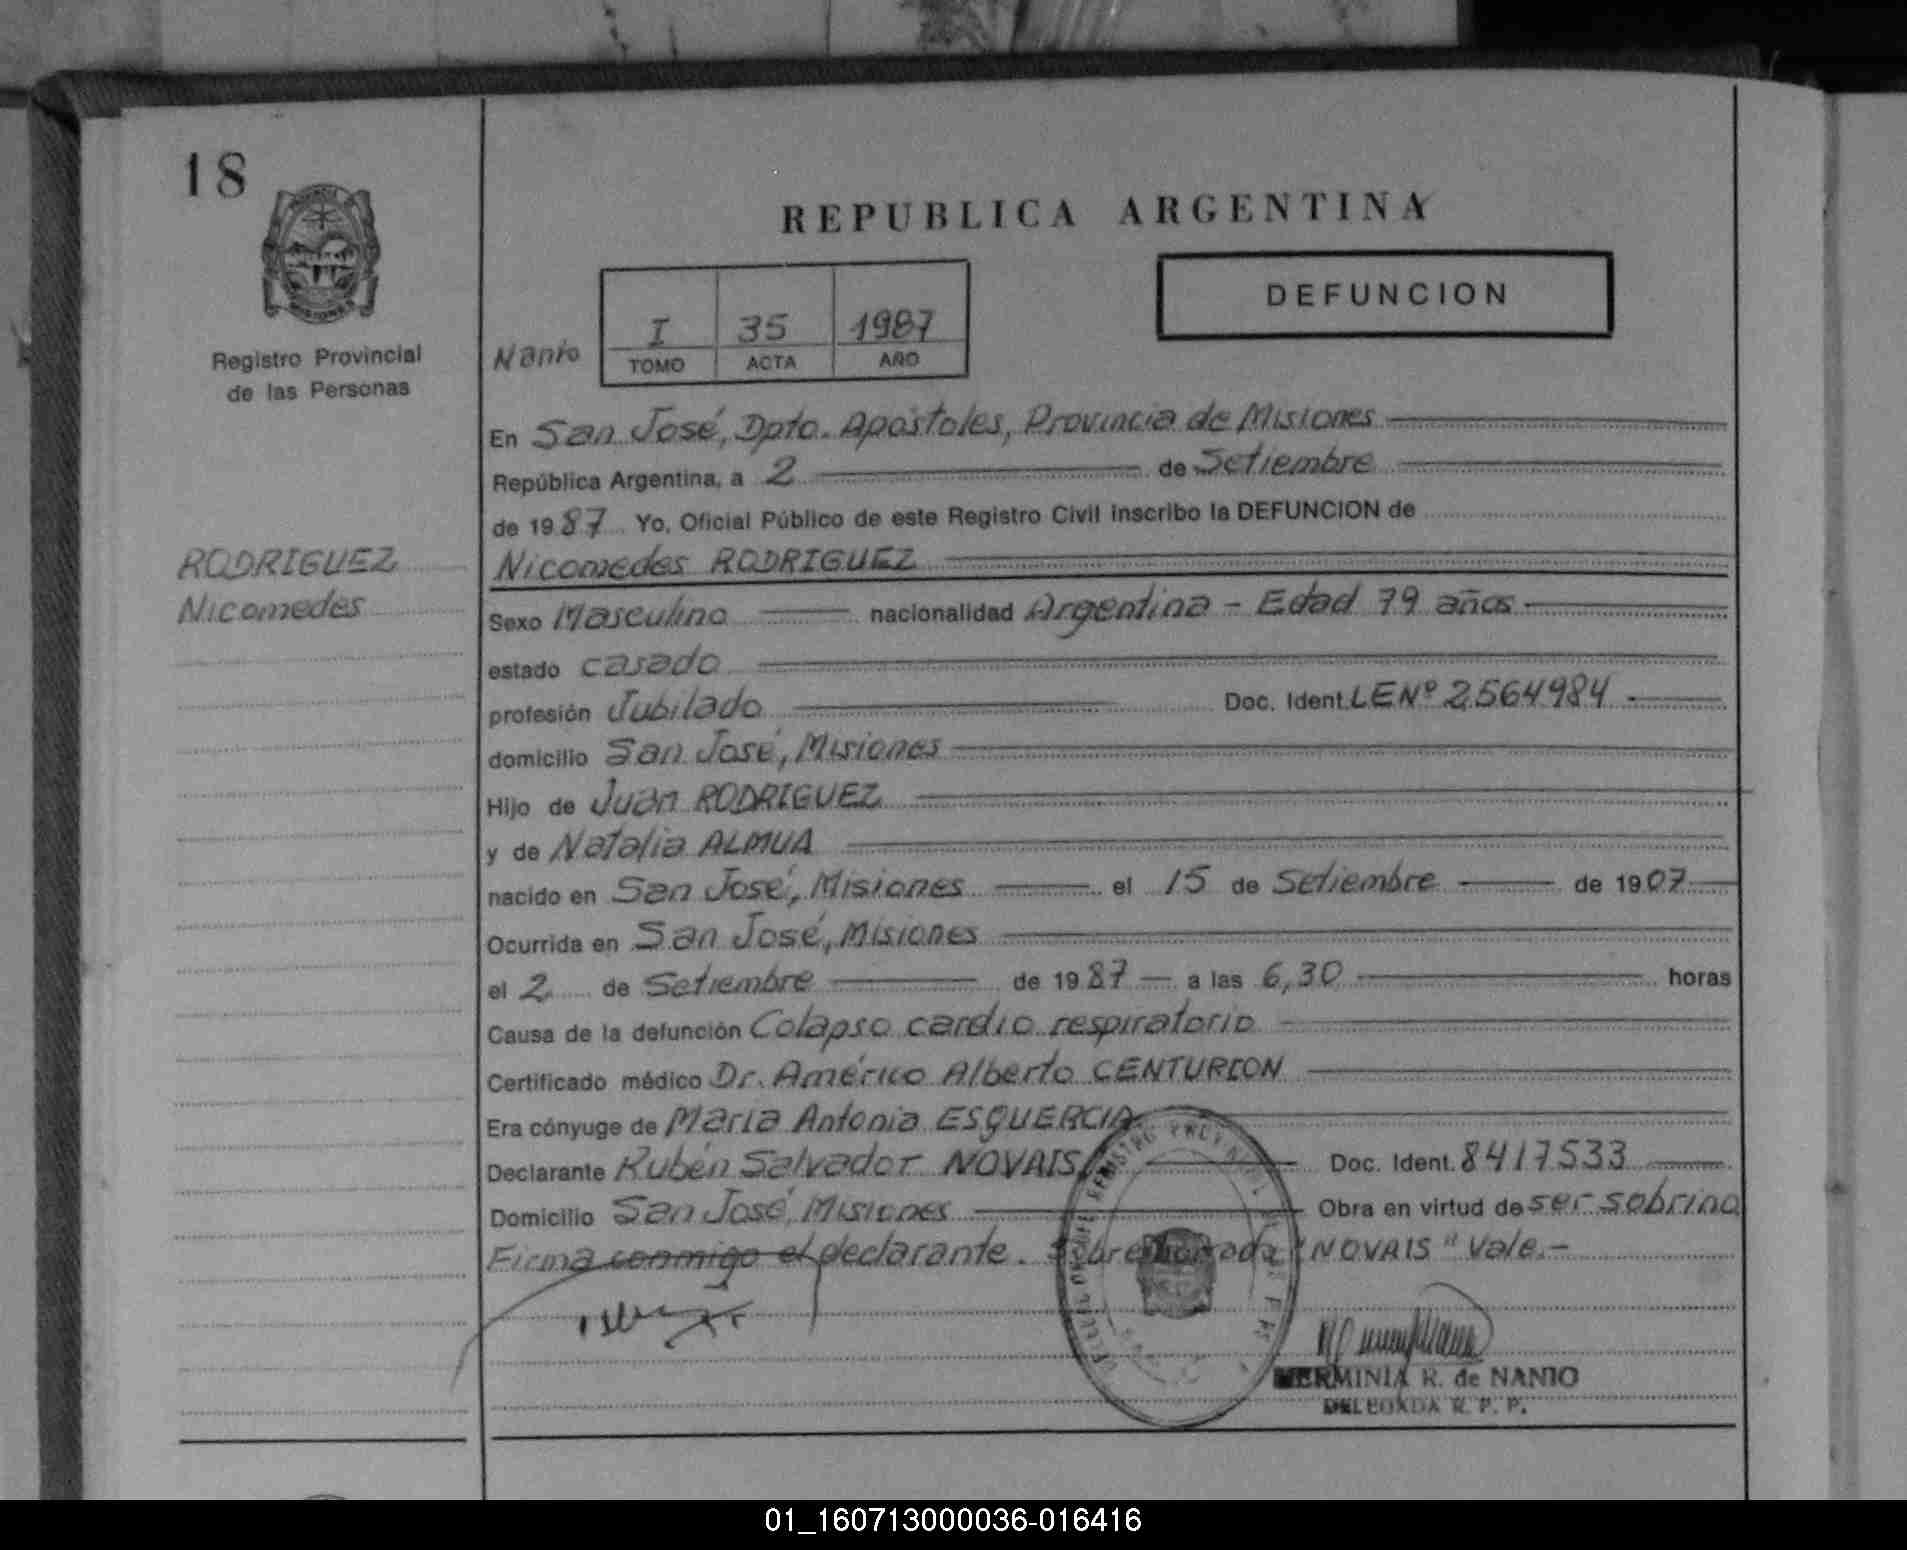 18
REPUBLICA ARGENTINA
DEFUNCION
Registro Provincial
de las Personas
Nanio
I 35 1987
TOMO ACTA AÑO
En San José, Dpto. Apóstoles, Provincia de Misiones
República Argentina, a 2 de Setiembre
de 1987 Yo, Oficial Público de este Registro Civil inscribo la DEFUNCION de
RODRIGUEZ
Nicomedes
Nicomedes RODRIGUEZ
Sexo Masculino nacionalidad Argentina - Edad 79 años
estado casado
profesión Jubilado Doc. Ident. LE Nº 2564984
domicilio San José, Misiones
Hijo de Juan RODRIGUEZ
y de Natalia ALMUA
nacido en San José, Misiones el 15 de Setiembre de 1907
Ocurrida en San José, Misiones
el 2 de Setiembre de 1987 a las 6,30 horas
Causa de la defunción Colapso cardio respiratorio
Certificado médico Dr. Américo Alberto CENTURION
Era cónyuge de María Antonia ESQUERCIA
Declarante Rubén Salvador NOVAIS Doc. Ident. 8417533
Domicilio San José, Misiones Obra en virtud de ser sobrino
Firma conmigo el declarante. Sobreborrada "NOVAIS" Vale.-
HERMINIA R. de NANIO
DELEGADA R. P. P.
01_160713000036-016416